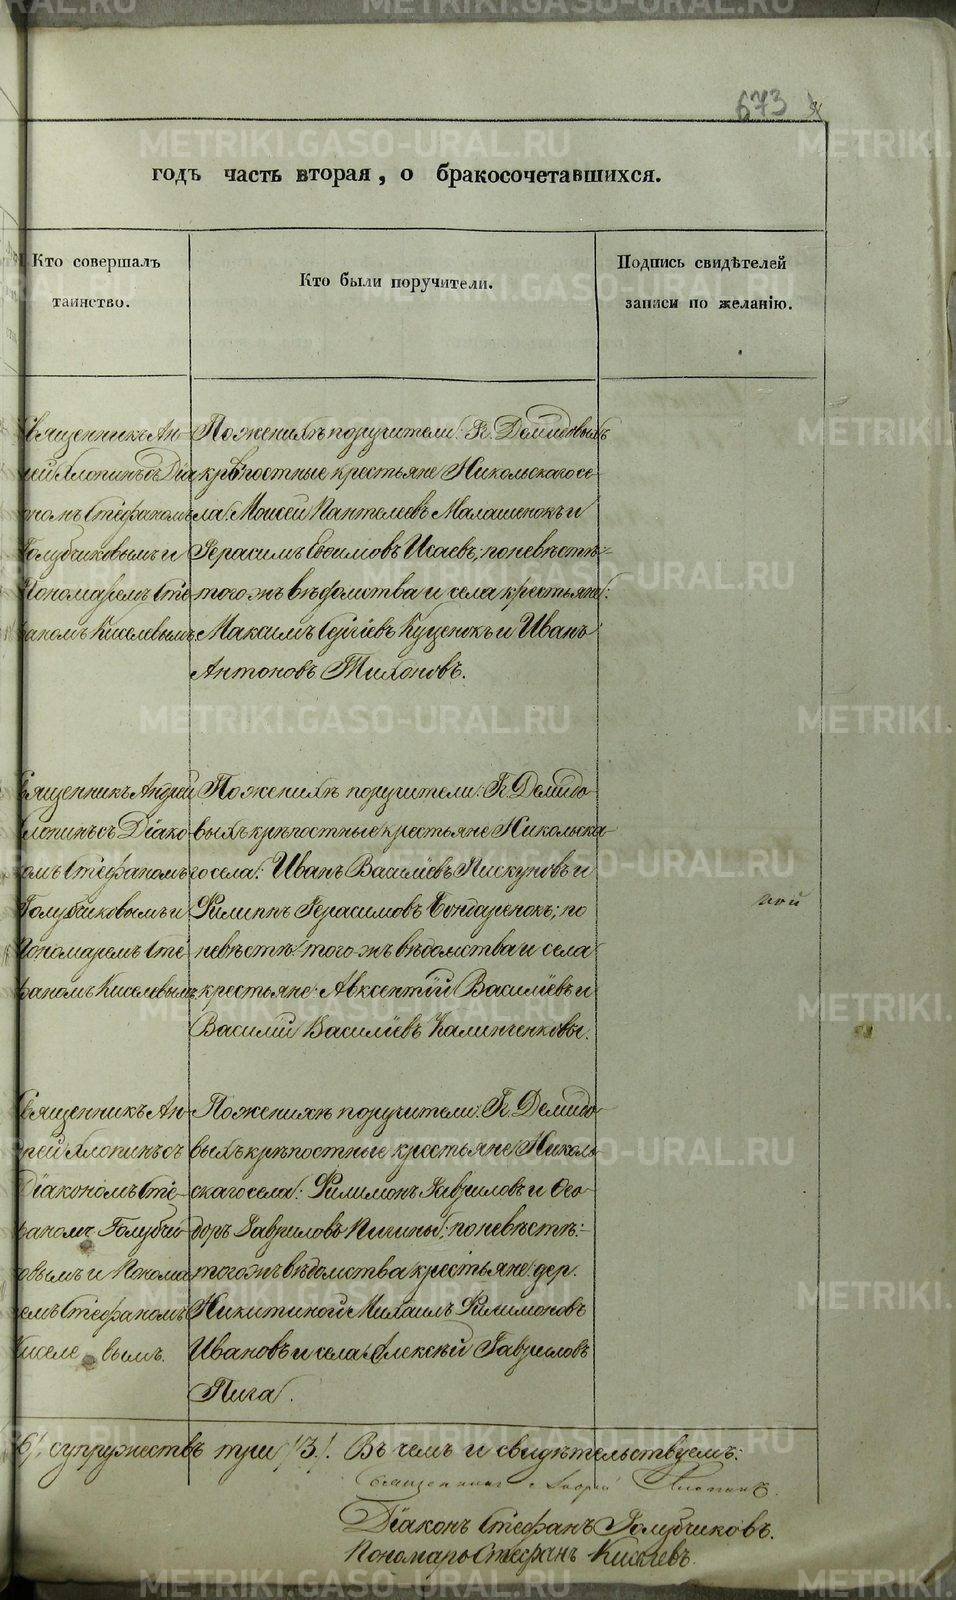 673
годъ часть вторая, о бракосочетавшихся.
Кто совершалъ
таинство.
Кто были поручители.
Подпись свидѣтелей
записи по желанію.
Священникъ Ан-
рей Хлопинъ съ Діа
кономъ Стефаномъ
Голубчиковымъ и
Пономаремъ Сте
фаномъ Киселевымъ.
По женихѣ поручители: Гг. Демидовыхъ
крѣпостные крестьяне Никольскаго се-
ла: Моисей Пантелеевъ Малашенокъ и
Герасимъ Евфимовъ Исаевъ; по невѣстѣ:
тогожъ вѣдомства и села крестьяне:
Максимъ Сергіевъ Куценокъ и Иванъ
Антоновъ Тихоновъ.
Священникъ Андрей
Хлопинъ съ Діако-
номъ Стефаномъ
Голубчиковымъ и
Пономаремъ Сте
фаномъ Киселевымъ
По женихѣ поручители: Гг. Демидо-
выхъ крѣпостные крестьяне Никольска-
го села: Иванъ Василіевъ Пискуновъ и
Филиппъ Герасимовъ Бондаренокъ; по
невѣстѣ: тогожъ вѣдомства и села
крестьяне: Авксентій Василіевъ и
Василій Василіевъ Калинченковы.
ной
Священникъ Ан-
дрей Хлопинъ съ
Діакономъ Сте-
фаномъ Голубчи-
ковымъ и Понома
ремъ Стефаномъ
Киселевымъ.
По женихѣ поручители: Гг. Демидо-
выхъ крѣпостные крестьяне Николь-
скаго села: Филимонъ Гавриловъ и Ѳео-
доръ Гавриловъ Пигины; по невѣстѣ:
тогожъ вѣдомства крестьяне: дер.
Никитиной Михаилъ Филимоновъ
Ивановъ и села Алексѣй Гавриловъ
Пига.
супружествъ три /3/. Въ чемъ и свидѣтельствуемъ:
Священникъ Андрей Хлопинъ.
Діаконъ Стефанъ Голубчиковъ.
Пономарь Стефанъ Киселевъ.
METRIKI.GASO-URAL.RU